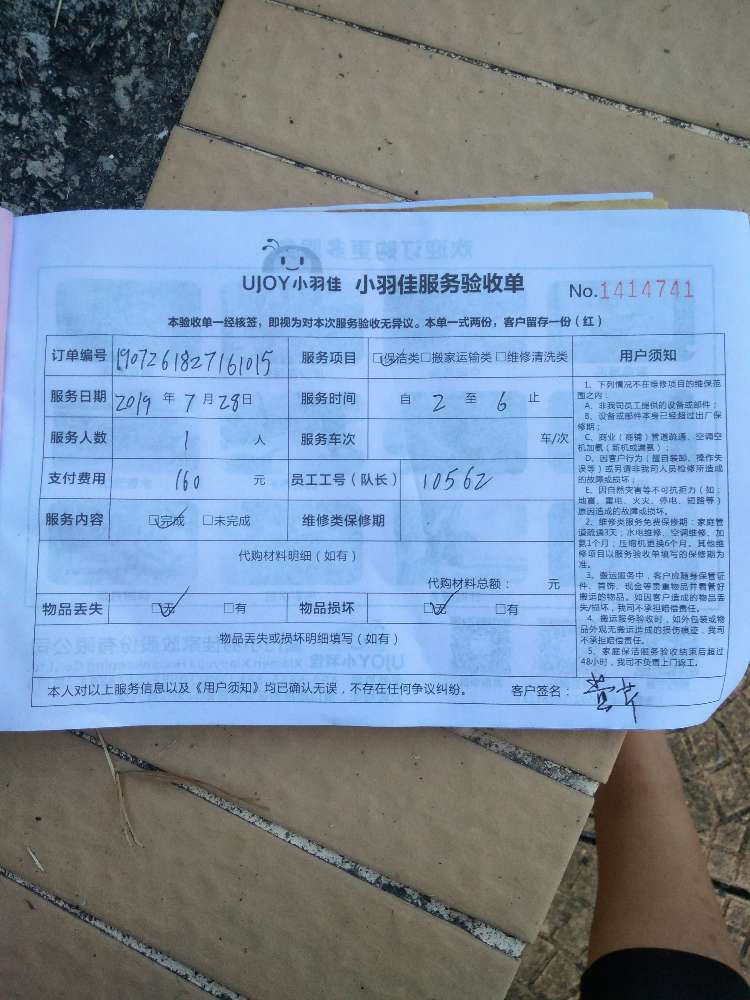 UJOY小羽佳 小羽佳服务验收单 No.1414741
本验收单一经核签，即视为对本次服务验收无异议。本单一式两份，客户留存一份（红）
订单编号 1907261827161015 服务项目 □保洁类□搬家运输类□维修清洗类
服务日期 2019 年 7 月 28 日 服务时间 自 2 至 6 止
服务人数 1 人 服务车次 车/次
支付费用 160 元 员工工号（队长） 10562
服务内容 □完成 □未完成 维修类保修期
代购材料明细（如有）
代购材料总额： 元
物品丢失 □无 □有 物品损坏 □无 □有
物品丢失或损坏明细填写（如有）
本人对以上服务信息以及《用户须知》均已确认无误，不存在任何争议纠纷。 客户签名：
用户须知
1、下列情况不在维修项目的维保范
围之内：
A、非我司员工提供的设备或部件；
B、设备或部件本身已经超过出厂保
修期；
C、商业（商铺）管道疏通、空调空
机加氨（新机或漏氨）；
D、因客户行为（擅自装卸、操作失
误等）或另请非我司人员检修所造成
的故障或损坏；
E、因自然灾害等不可抗拒力（如：
地震、雷电、火灾、停电、短路等）
原因造成的故障或损坏。
2、维修类服务免费保修期：家庭管
道疏通3天；水电维修、空调维修、加
氨1个月；压缩机更换6个月。其他维
修项目以服务验收单填写的保修期为
准。
3、搬运服务中，客户应随身保管证
件、首饰、现金等贵重物品并看管好
搬运的物品。如因客户造成的物品丢
失/损坏，我司不承担赔偿责任。
4、搬运服务验收时，如外包装或物
品外观无搬运造成的损伤痕迹，我司
不承担赔偿责任。
5、家庭保洁服务验收结束后超过
48小时，我司不负责上门返工。